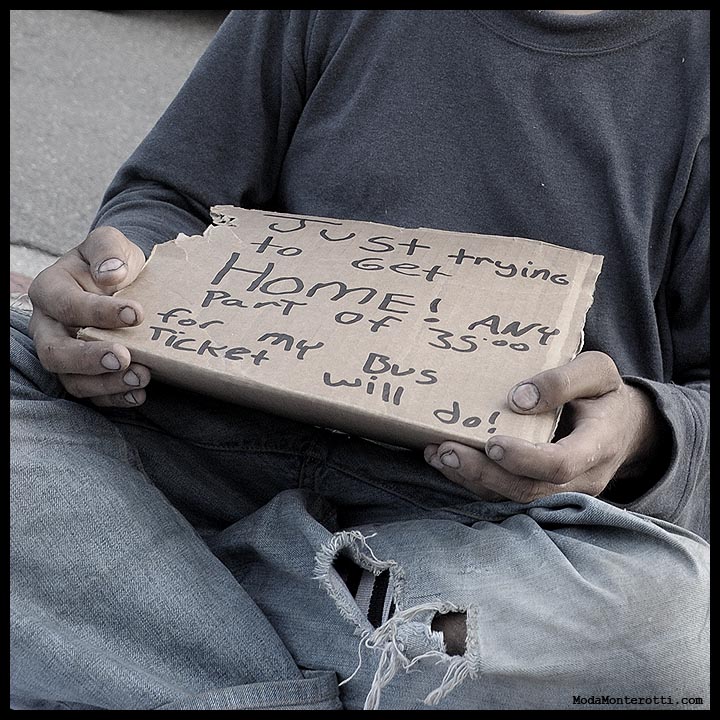 Just trying
to Get
HOME! ANY
part of 35.00
for my Bus
Ticket will do!
ModaMonterotti.com